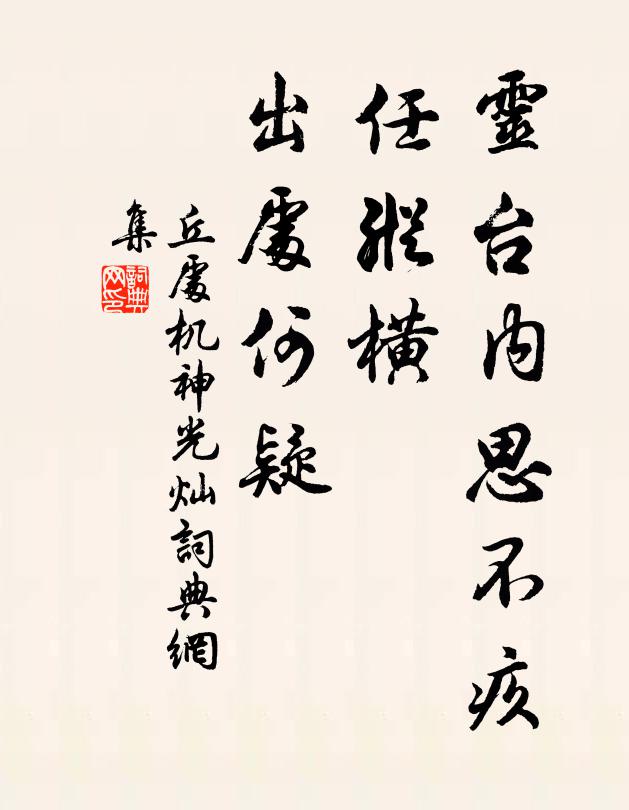 靈台内思不疚
任縱橫
出處何疑
丘處机神光灿詞典網
集
詞典网印